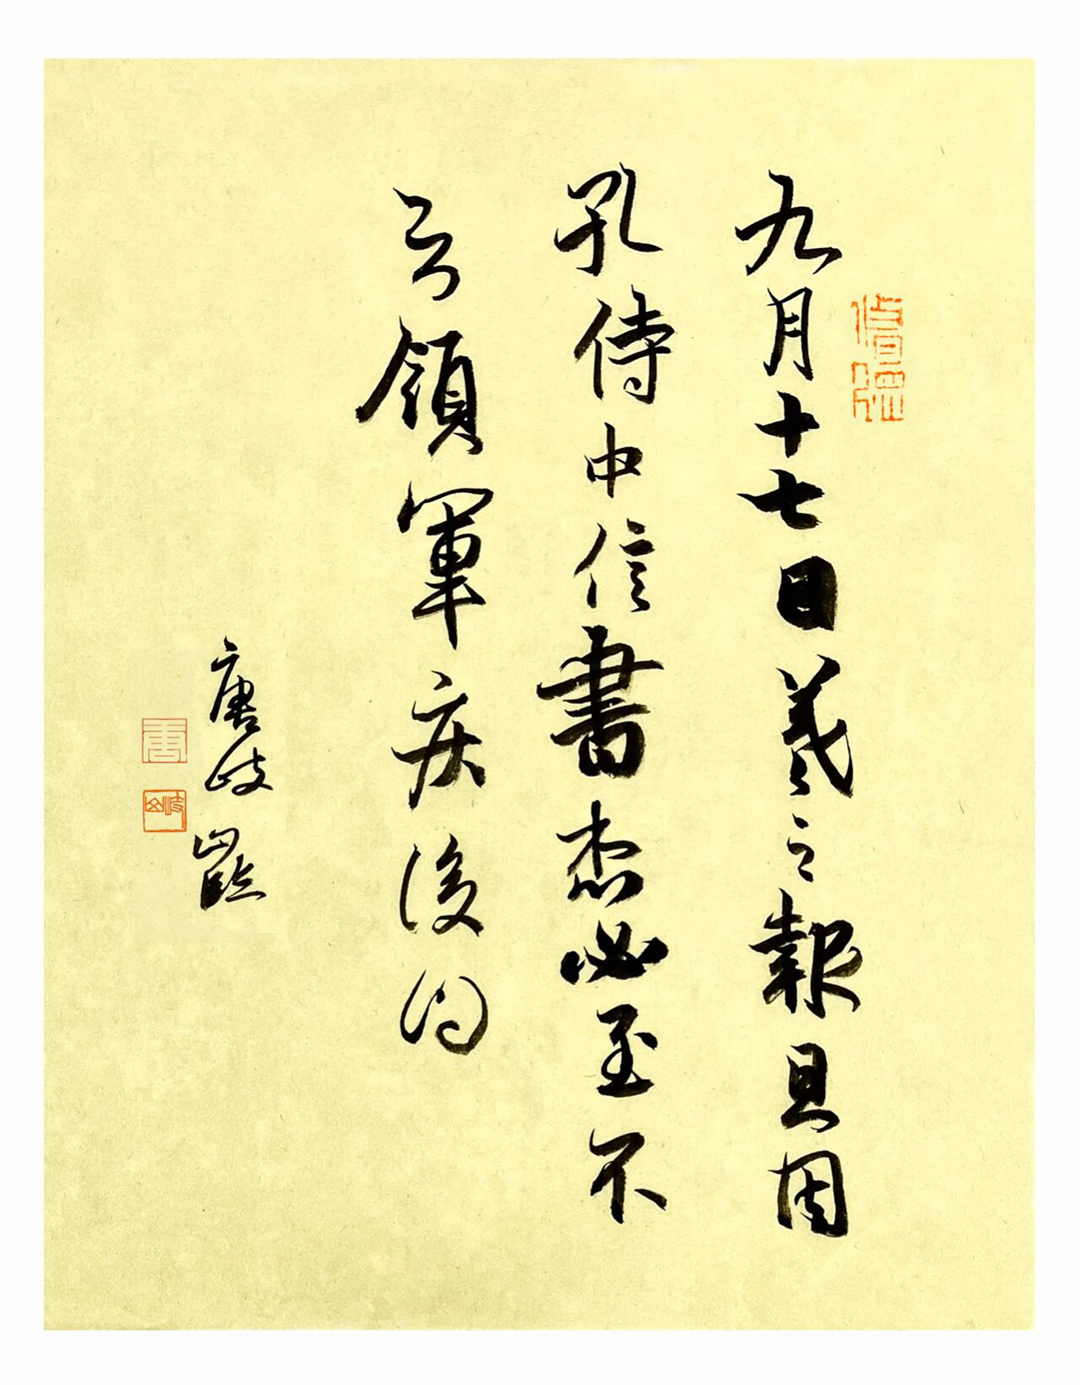 九月十七日羲之報且因
孔侍中信書想必至不
知領軍疾後問
唐岐山臨
唐
岐山